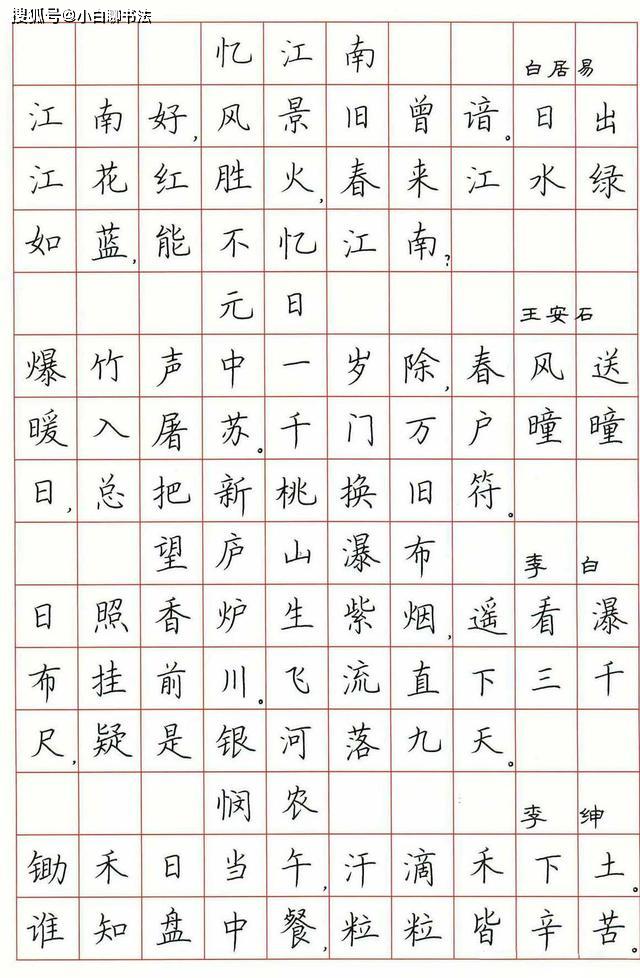 搜狐号@小白聊书法
忆江南 白居易
江南好,风景旧曾谙。日出
江花红胜火,春来江水绿
如蓝,能不忆江南?
元日 王安石
爆竹声中一岁除,春风送
暖入屠苏。千门万户曈曈
日,总把新桃换旧符。
望庐山瀑布 李白
日照香炉生紫烟,遥看瀑
布挂前川。飞流直下三千
尺,疑是银河落九天。
悯农 李绅
锄禾日当午,汗滴禾下土。
谁知盘中餐,粒粒皆辛苦。